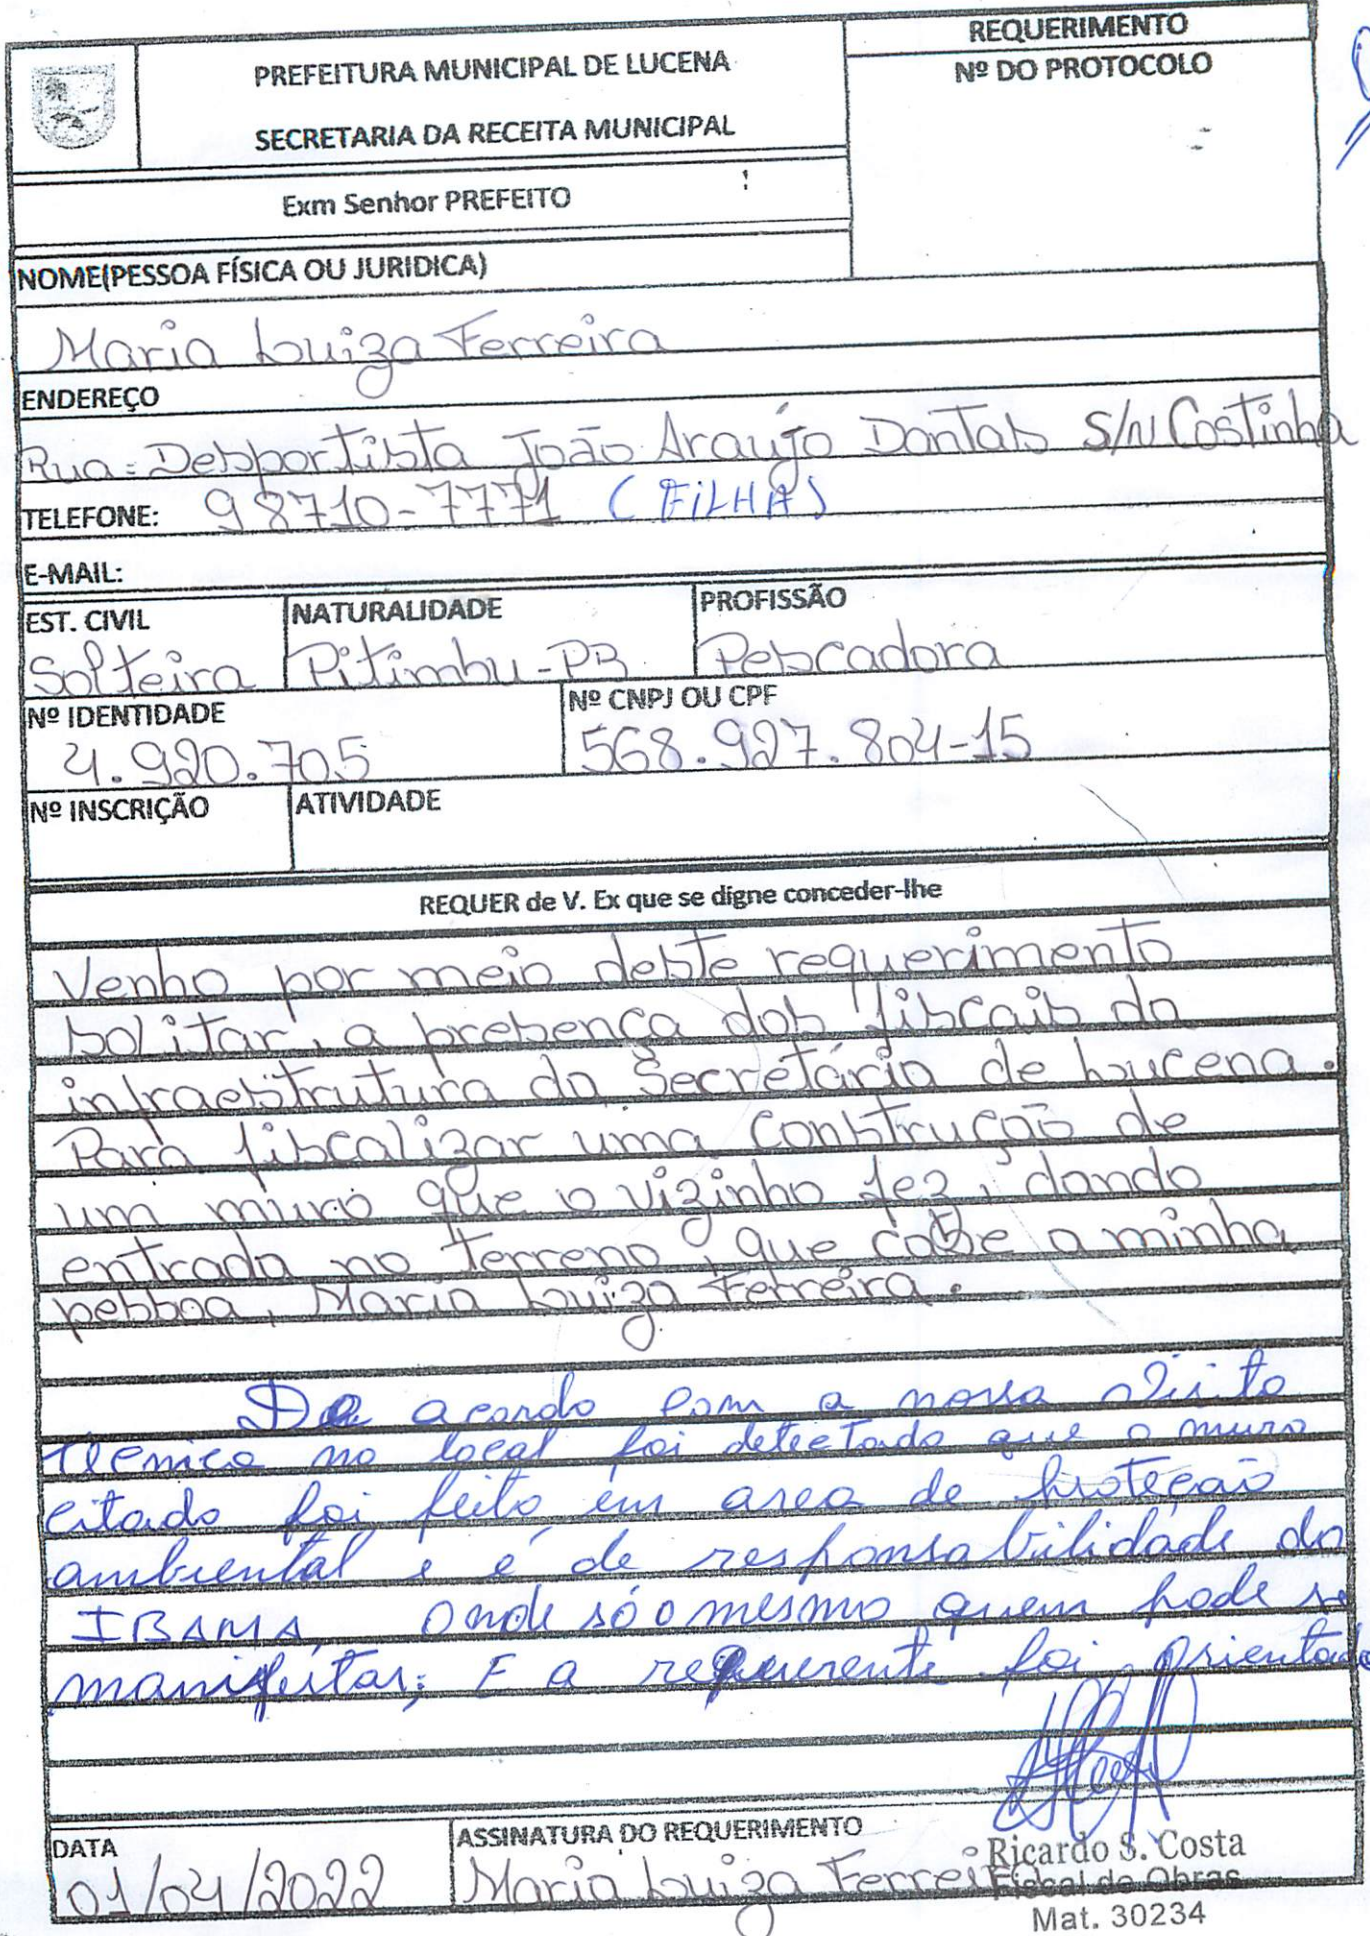 REQUERIMENTO
PREFEITURA MUNICIPAL DE LUCENA
Nº DO PROTOCOLO
SECRETARIA DA RECEITA MUNICIPAL
Exm Senhor PREFEITO
NOME(PESSOA FÍSICA OU JURIDICA)
Maria Luiza Ferreira
ENDEREÇO
Rua: Desportista João Araújo Dantas S/N Costinha
TELEFONE: 98710-7771 (FILHA)
E-MAIL:
EST. CIVIL NATURALIDADE PROFISSÃO
Solteira Pitimbu-PB Pescadora
Nº IDENTIDADE Nº CNPJ OU CPF
4.920.705 568.927.804-15
Nº INSCRIÇÃO ATIVIDADE
REQUER de V. Ex que se digne conceder-lhe
Venho por meio deste requerimento
solitar, a presença dos fiscais da
infraestrutura da Secretária de Lucena.
Para fiscalizar uma construção de
um muro que o vizinho fez, dando
entrada no terreno, que cabe a minha
pessoa, Maria Luiza Ferreira.
De acordo com a nossa visita
técnica no local foi detectado que o muro
citado foi feito em area de proteção
ambiental e é de responsabilidade do
IBAMA, onde só o mesmo quem pode se
manifestar; E a requerente foi orientada
DATA ASSINATURA DO REQUERIMENTO
01/04/2022 Maria Luiza Ferreira
Ricardo S. Costa
Fiscal de Obras
Mat. 30234